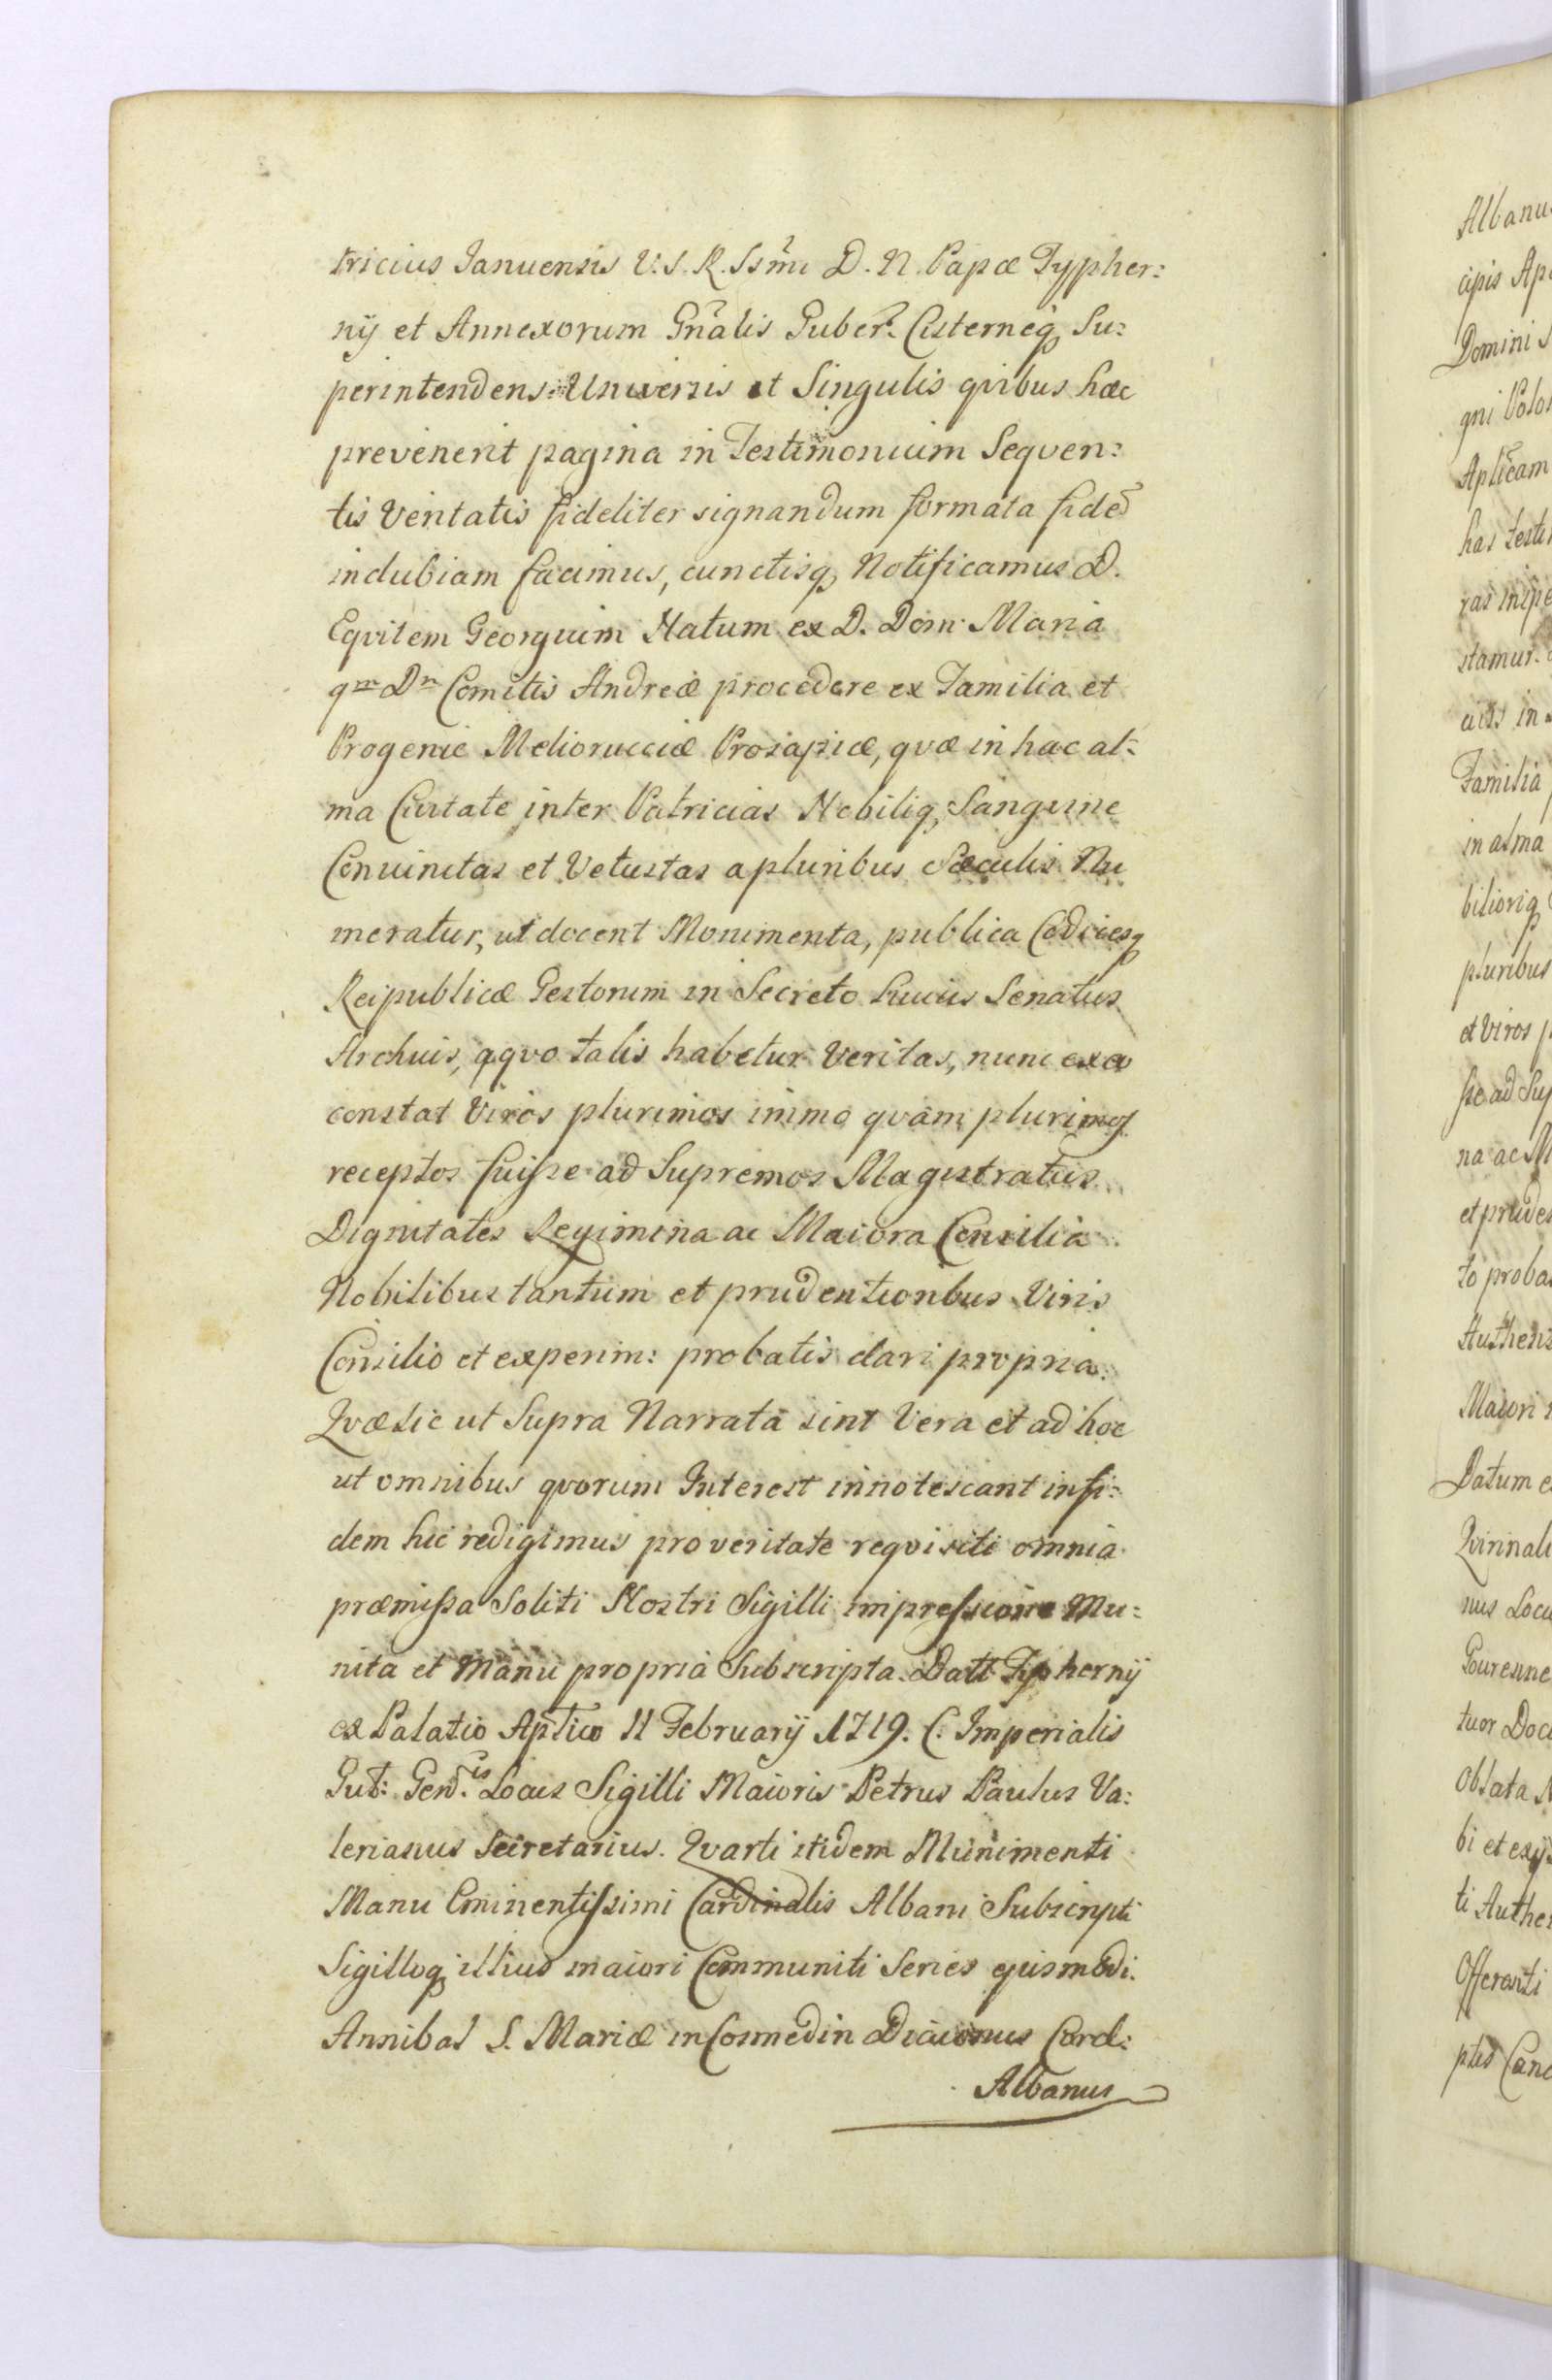 tricius Januensis V. S. R. Ssm̃i D. N. Papæ Typher:
nij et Annexorum Gñalis Guber: Cisterneq, Su:
perintendens. Universis et Singulis qvibus hæc
prevenerit pagina in Testimonium Seqven:
tis Veritatis fideliter signandum formata fidẽ
indubiam facimus, cunctisq, Notificamus D.
Eqvitem Georgium Natum ex D. Dom: Maria
qm Dn Comitis Andreæ procedere ex Familia et
Progenie Meliorucciæ Prosapiæ, qvæ in hac al:
ma Civitate inter Patricias Nobiliq, Sangvine
Conuinctas et Vetustas a pluribus Sæculis Nu
meratur, ut docent Monimenta, publica Codicesq
Reipublicæ Gestorum in Secreto huius Senatus
Archuis, qqvo talis habetur Veritas, nunc ex eo
constat Viros plurimos immo qvam plurimos
receptos fuisse ad Supremos Magistratus
Dignitates Regimina ac Maiora Consilia
Nobilibus tantum et prudentioribus Viris
Consilio et experim: probatis dari propria.
Qvæ sic ut Supra Narrata sint Vera et ad hoc
ut omnibus qvorum Interest innotescant in fi:
dem hic redigimus pro veritate reqvisiti omnia
præmissa Soliti Nostri Sigilli impressione Mu:
nita et Manu propria Subscripta. Datt Typhernij
ex Palatio Aptico 11 February 1719. C. Imperialis
Gub: Gen͠is Locus Sigilli Maioris Petrus Paulus Va:
lerianus Secretarius. Qvarti itidem Munimenti
Manu Eminentissimi Cardinalis Albani Subscripti
Sigilloq, illius maiori Communiti Series ejusmodi.
Annibal S. Mariæ in Cosmedin Diaconus Card:
Albanus
Albanus
cipis Ap
Domini S
gni Polo
Aplicam
has testi
ras inspe
stamur
in
Familia
in alma
bilioriq
pluribus
et Viros p
sse ad Sup
na ac M
et prude
to proba
Authen
Maiori
Datum e
Qvirinali
nus Locu
tuor Doc
Oblata
bi et exij
ti Authe
Offerenti
ptis Canc